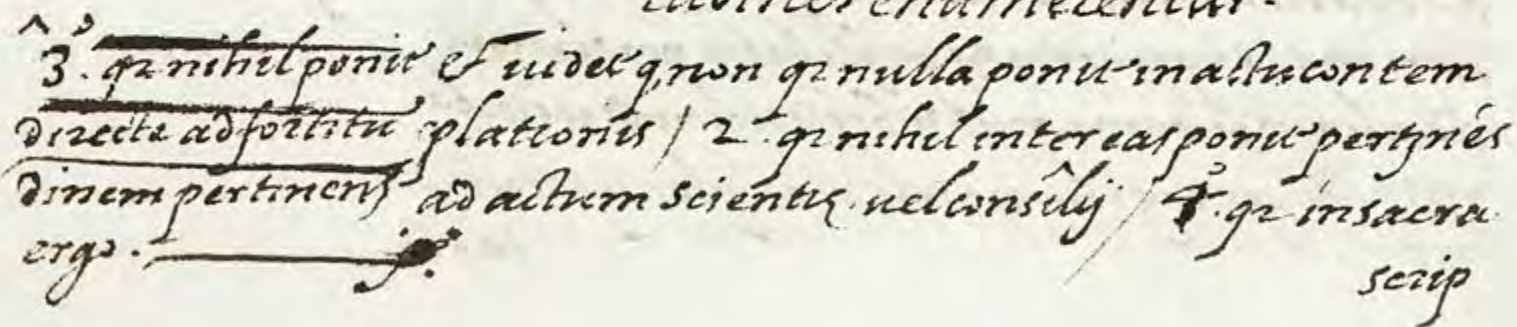 enumerentur.
3º. qz nihil ponit
directe ad fortitu
dinem pertinens
ergo.
Et uidet q, non qz nulla ponit in actu contem
plationis / 2. qz nihil inter eas ponit pertinēs
ad actum scientię uel consilij / 4º. qz in sacra
scrip